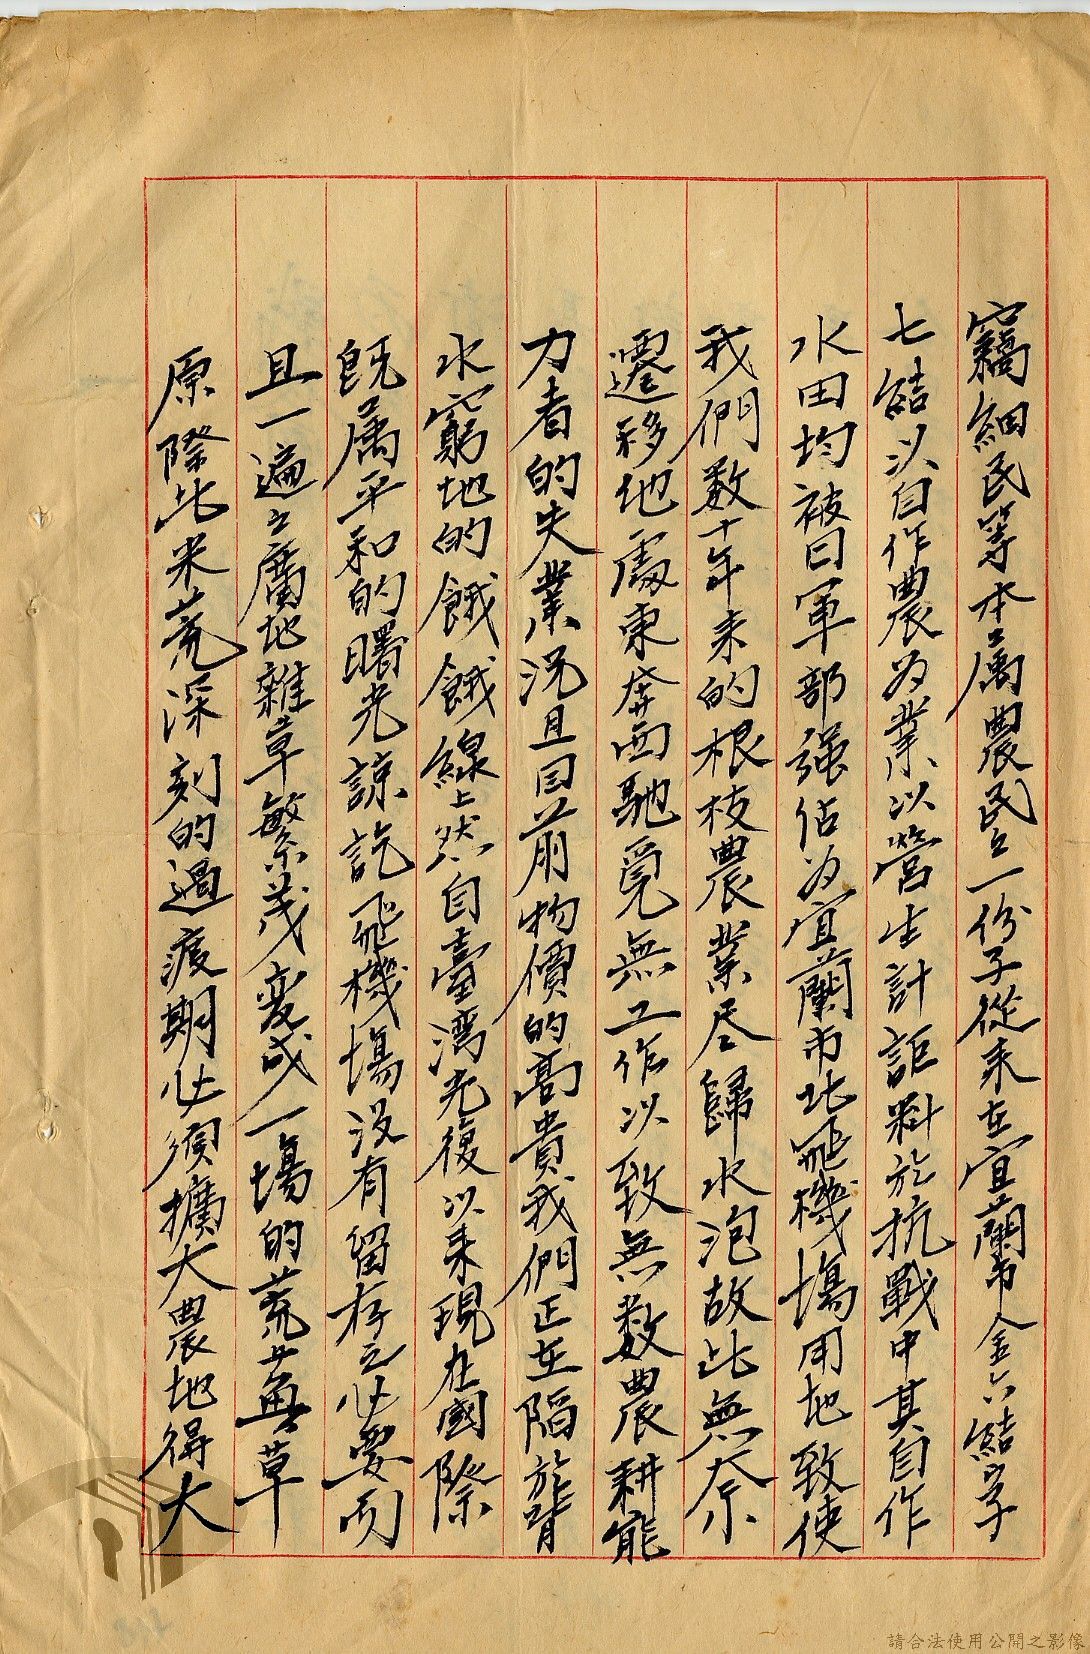 竊細民等本屬農民之一份子從來在宜蘭市金六結字
七結以自作農為業以營生計詎料於抗戰中其自作
水田均被日軍部強佔為宜蘭市北飛機場用地致使
我們数十年来的根枝農業尽歸水泡故此無奈
遷移他處東奔西馳覓無工作以致無数農耕能
力者的失業况且目前物價的高貴我們正在陷於皆
水窮地的餓餓線上然自臺湾光復以来現在國際
既属平和的曙光諒訖飛機場没有留存之必要而
且一遍之廣地雜草繁茂変成一場的荒蕪草
原際此米荒深刻的過渡期必須擴大農地得大
請合法使用公開之影像